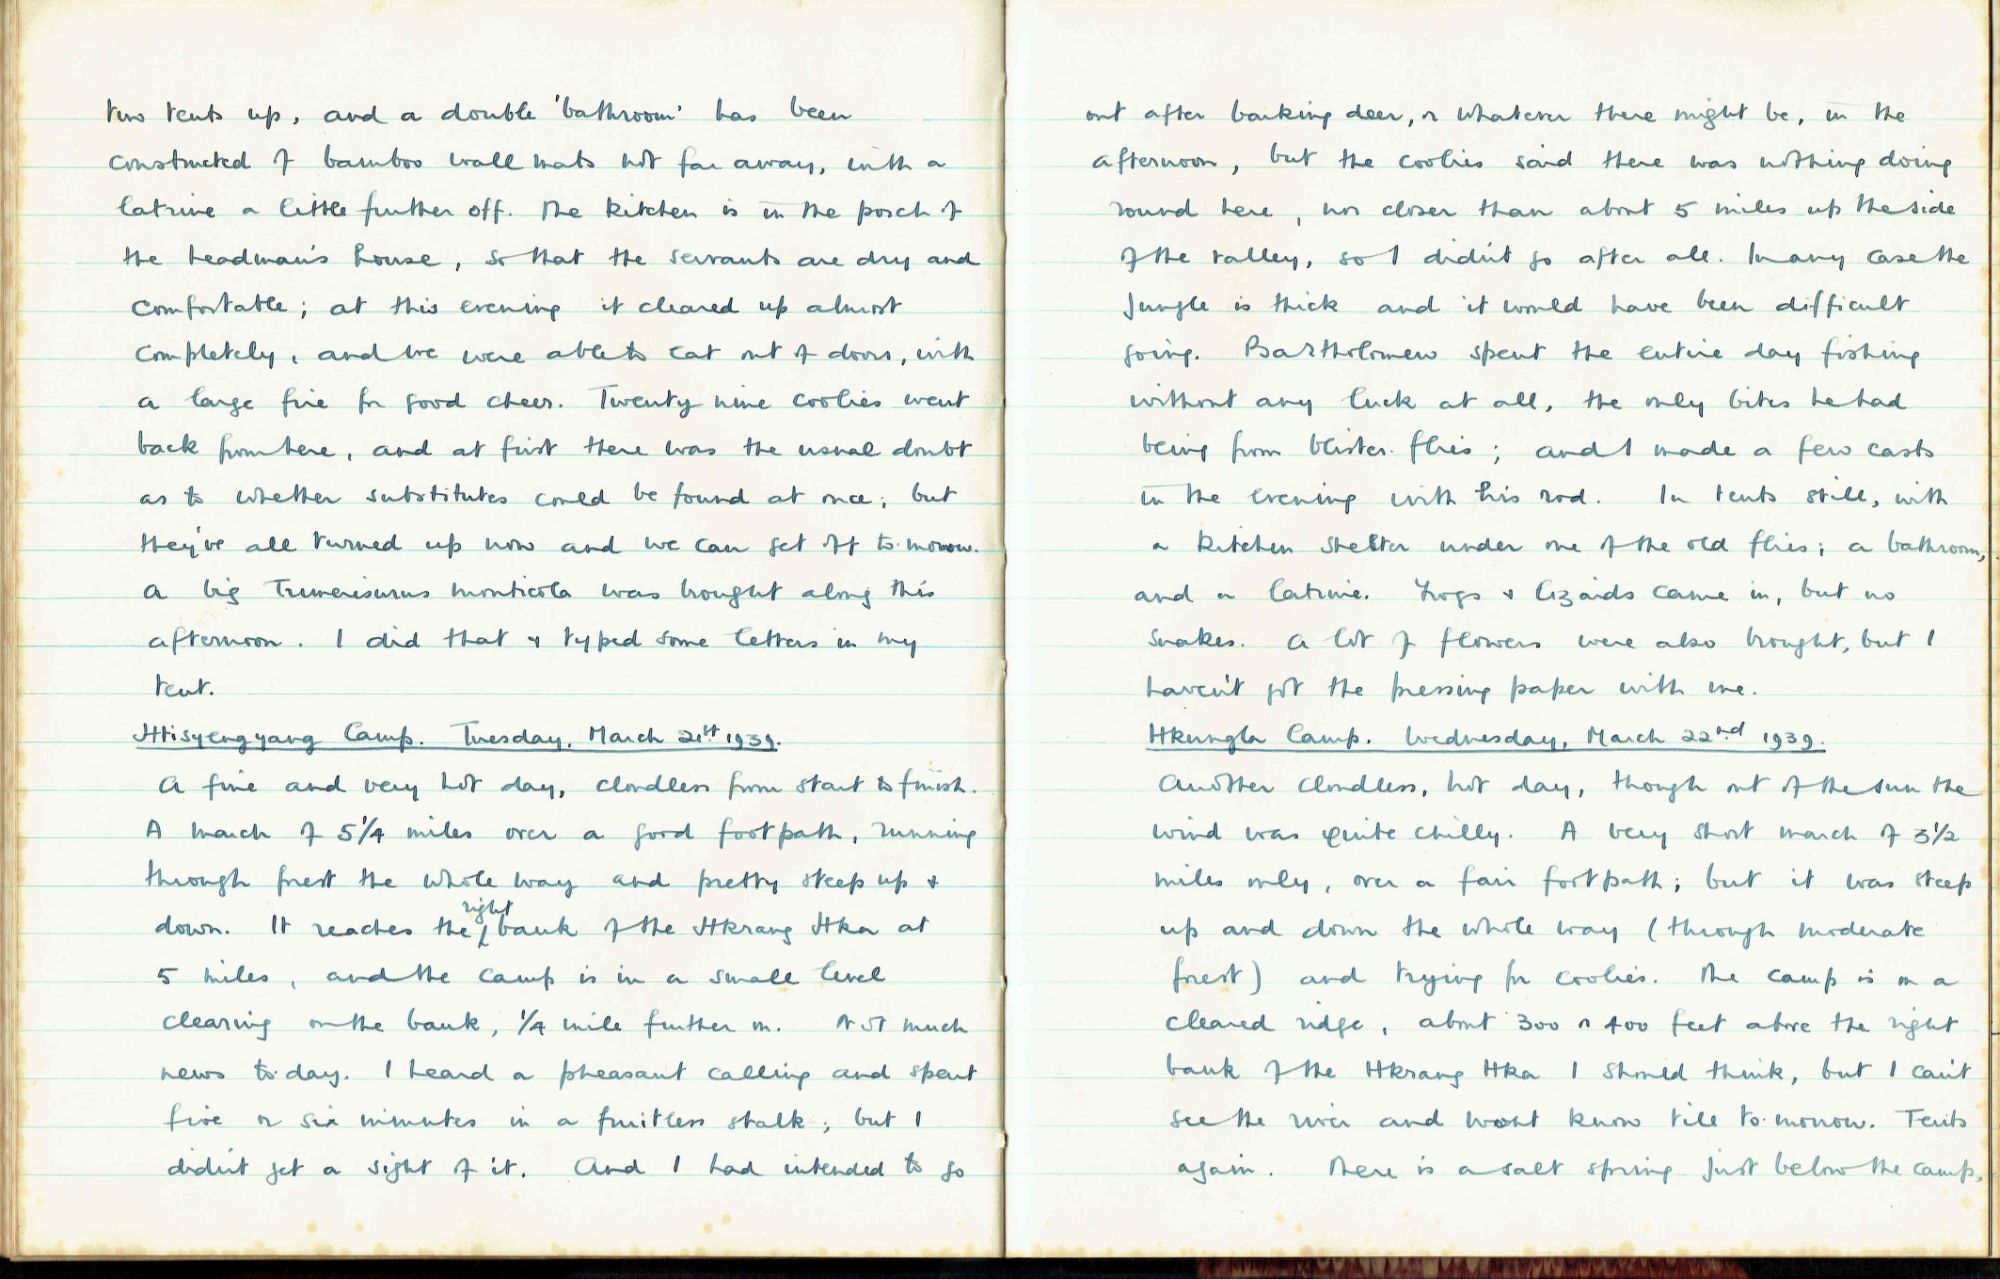 two tents up, and a double 'bathroom' has been
constructed of bamboo wall mats not far away, with a
latrine a little further off. The kitchen is in the porch of
the headman's house, so that the servants are dry and
comfortable; at this evening it cleared up almost
completely, and we were able to eat out of doors, with
a large fire for good cheer. Twenty nine coolies went
back from here, and at first there was the usual doubt
as to whether substitutes could be found at once; but
they've all turned up now and we can get off to-morrow.
A big Trimeresurus monticola was brought along this
afternoon. I did that & typed some letters in my
tent.
Htisyengyang Camp. Tuesday, March 21st 1939.
A fine and very hot day, cloudless from start to finish.
A march of 5 1/4 miles over a good footpath, running
through forest the whole way and pretty steep up &
down. It reaches the right bank of the Hkrang Hka at
5 miles, and the camp is in a small level
clearing on the bank, 1/4 mile further on. Not much
news to-day. I heard a pheasant calling and spent
five or six minutes in a fruitless stalk; but I
didn't get a sight of it. And I had intended to go
out after barking deer, or whatever there might be, in the
afternoon, but the coolies said there was nothing doing
round here, nor closer than about 5 miles up the side
of the valley, so I didn't go after all. In any case the
jungle is thick and it would have been difficult
going. Bartholomew spent the entire day fishing
without any luck at all, the only bites he had
being from blister-flies; and I made a few casts
in the evening with his rod. In tents still, with
a kitchen shelter under one of the old flies; a bathroom,
and a latrine. Frogs & lizards came in, but no
snakes. A lot of flowers were also brought, but I
haven't got the pressing paper with me.
Hkungla Camp. Wednesday, March 22nd 1939.
Another cloudless, hot day, though out of the sun the
wind was quite chilly. A very short march of 3 1/2
miles only, over a fair footpath; but it was steep
up and down the whole way (through moderate
forest) and trying for coolies. The camp is on a
cleared ridge, about 300 or 400 feet above the right
bank of the Hkrang Hka I should think, but I can't
see the river and wont know till to-morrow. Tents
again. There is a salt spring just below the camp,